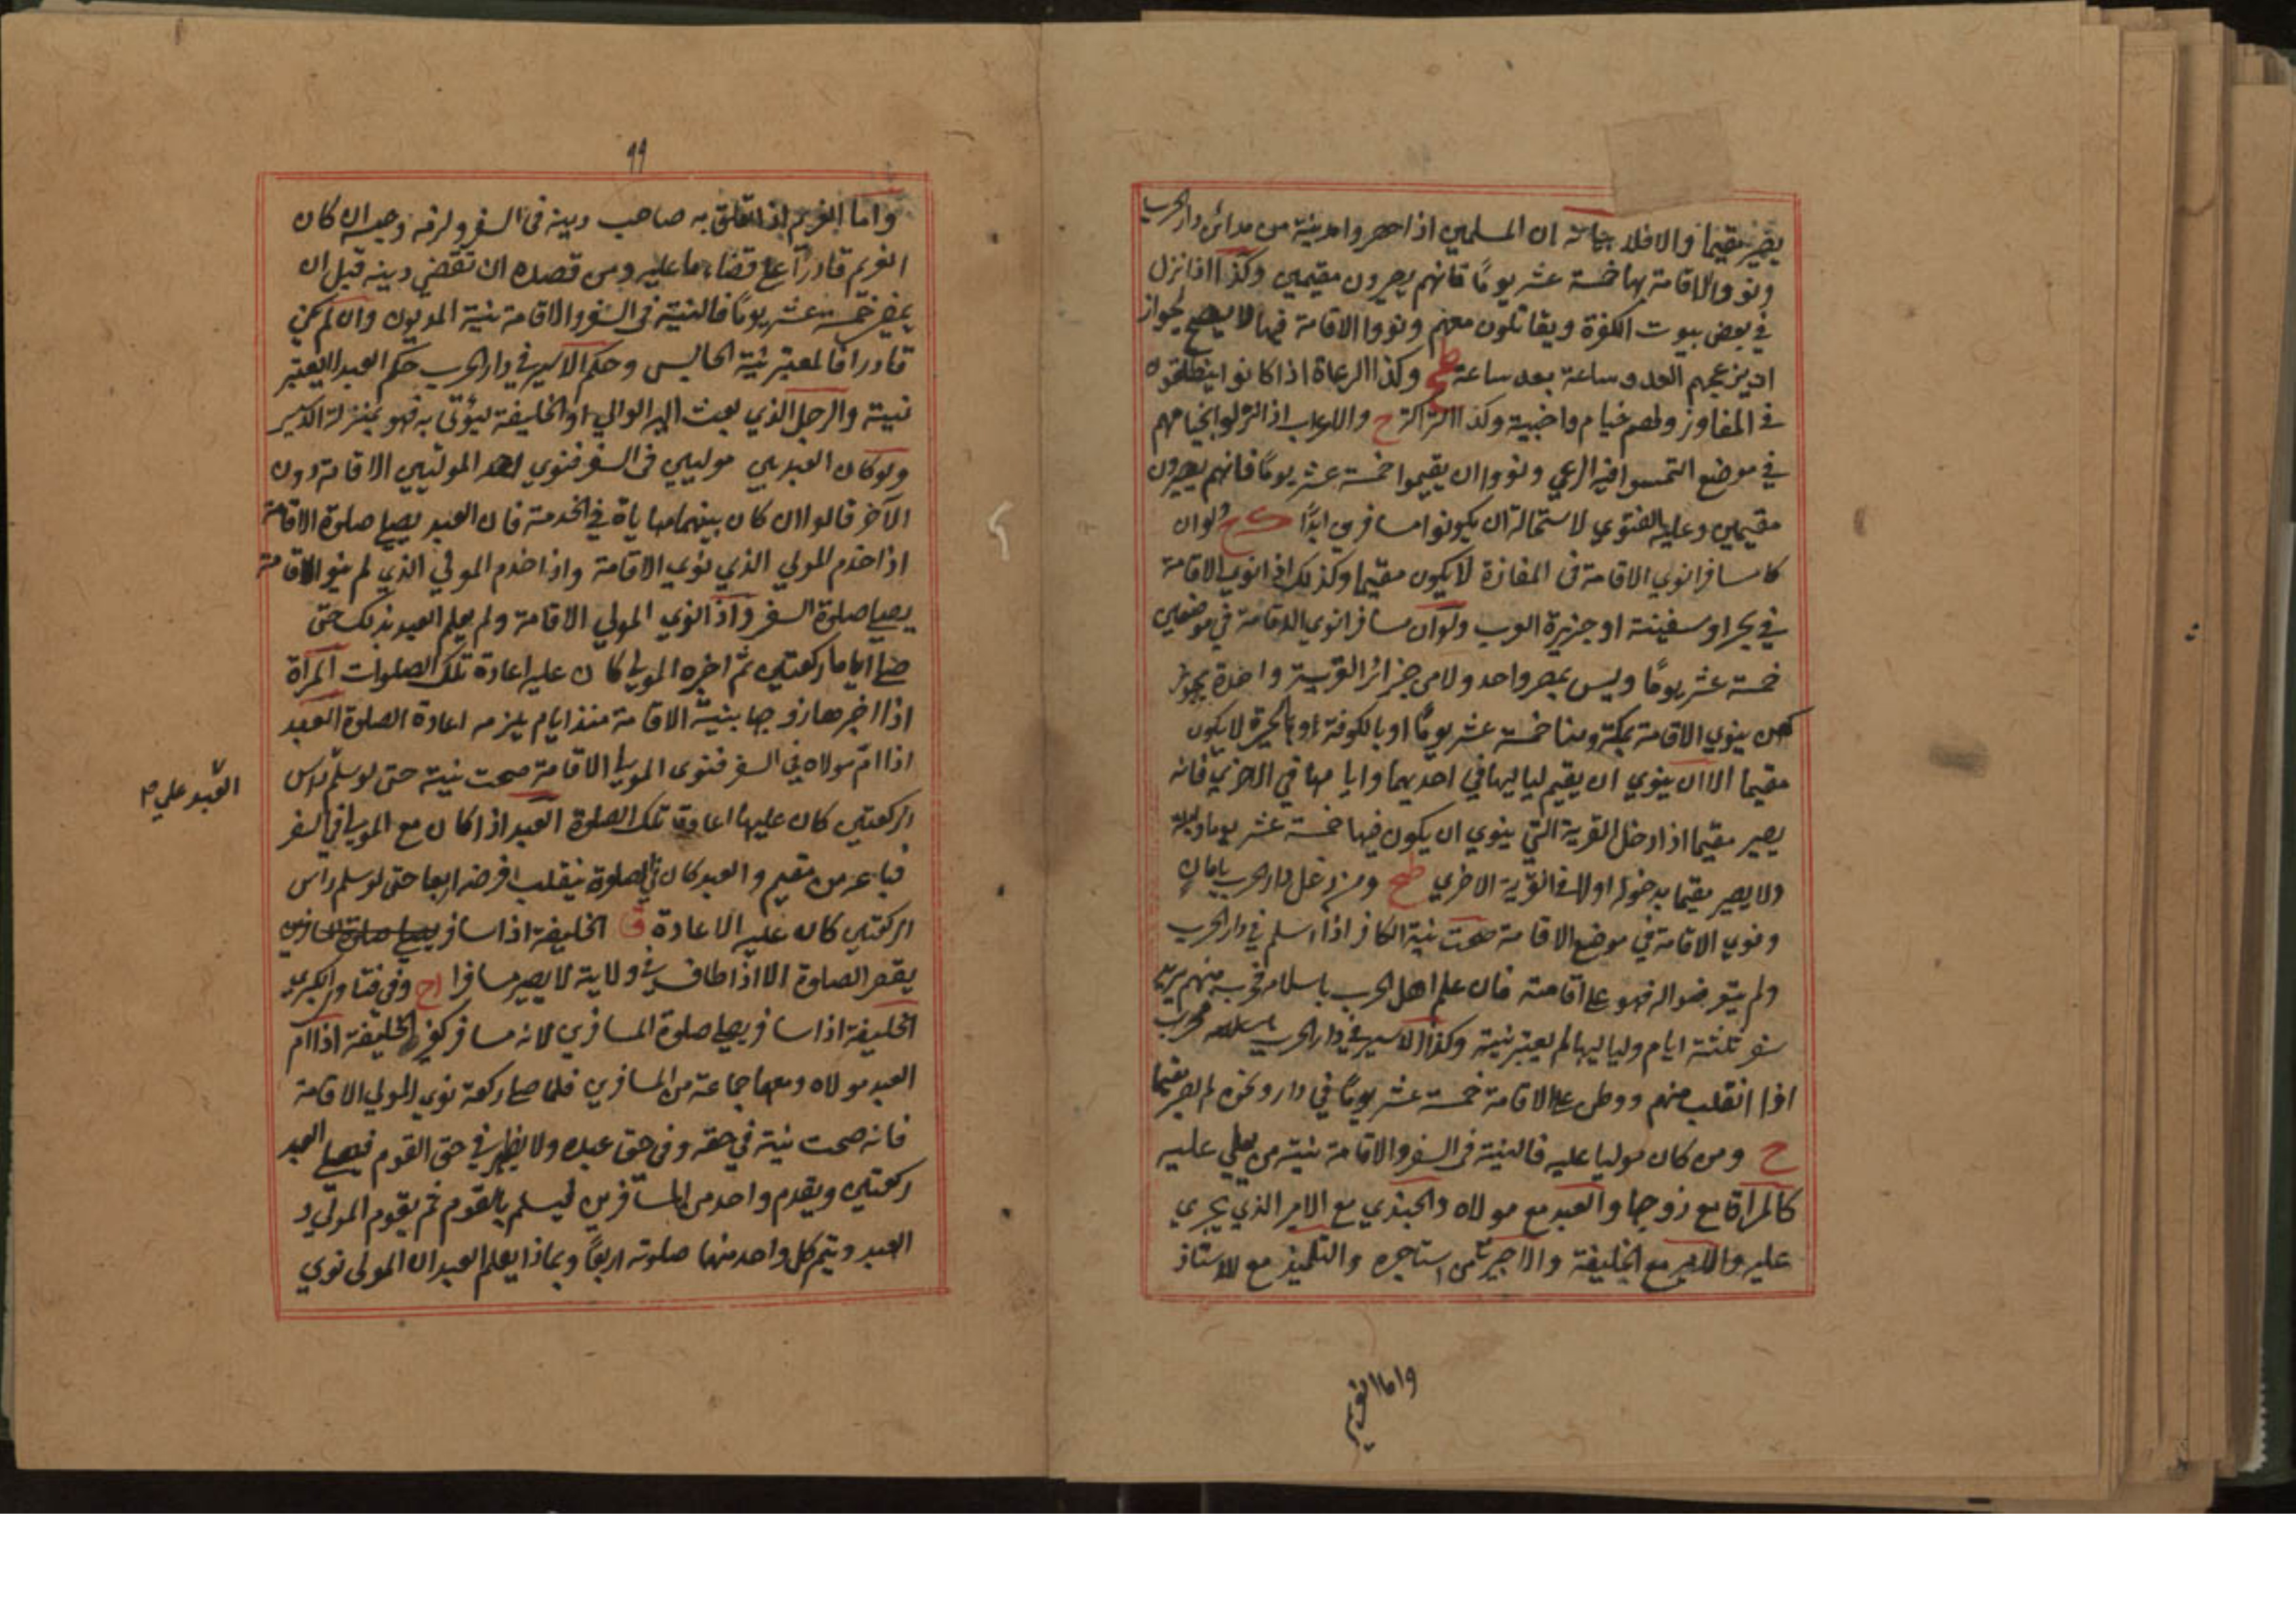 يصير مقيما والا فلا ان المسلمين اذا حصروا مدينة من مدائن دار الحرب
ونووا الاقامة بها خمسة عشر يومًا فانهم يصيرون مقيمين وكذا اذا نزل
في بعض بيوت الكفرة ويقاتلون معهم ونووا الاقامة فيها لا يصح لجواز
ان يزعجهم العدو ساعة بعد ساعة وكذا الرعاة اذا كانوا
في المفاوز ولهم خيام واخبية وكذا التراكمة ح والاعراب اذا نزلوا بخيامهم
في موضع التمسوا فيه الرعي ونووا ان يقيموا خمسة عشر يومًا فانهم يصيرون
مقيمين وعليه الفتوي لاستحالة ان يكونوا مسافرين ابدًا ولو ان
كا مسافرا نوي الاقامة في المفازة لا يكون مقيما وكذلك اذا نوي الاقامة
في بحر او سفينة او جزيرة العرب ولو ان مسافرا نوي الاقامة في موضعين
خمسة عشر يومًا وليس بمصر واحد ولا من جزائر القرية واحدة
كمن ينوي الاقامة بمكة ومنا خمسة عشر يومًا او بالكوفة او بالحيرة لا يكون
مقيما الا ان ينوي ان يقيم لياليها في احديهما وايامها في الاخري فانه
يصير مقيما اذا دخل القرية التي ينوي ان يكون فيها خمسة عشر يوما وليلة
ولا يصير مقيما بدخوله اولا في القرية الاخري طح ومن دخل دار الحرب بامان
ونوي الاقامة في موضع الاقامة صحت نية الكافر اذا اسلم في دار الحرب
ولم يتعرضوا له فهو علي اقامته فان علم اهل الحرب باسلامه منهم يريد
سفر ثلثة ايام ولياليها لم يعتبر نية وكذا الاسير في دار الحرب
اذا انقلب منهم ووطن علي الاقامة خمسة عشر يومًا في دار ونحوه لم يصر مقيما
ح ومن كان موليا عليه فالنية في السفر والاقامة نية من يلي عليه
كالمراة مع زوجها والعبد مع مولاه والجندي مع الامير الذي يجري
عليه والامير مع الخليفة والاجير من استاجره والتلميذ مع الاستاذ
واما الغريم
٩٩
واما الغريم اذا تعلق به صاحب دينه في السفر ولزمه وحبسه ان كان
الغريم قادرًا علي قضاء ما عليه ومن قصده ان تقضي دينه قبل ان
يمضي خمسة عشر يومًا فالنية في السفر والاقامة نية المديون وان لم يكن
قادرا فالمعتبر نية الحابس وحكم الاسير في دار الحرب حكم العبد لا يعتبر
نيته والرجل الذي بعث اليه الوالي او الخليفة ليؤتي به فهو بمنزلة الاسير
ولو كان العبد بين موليين في السفر فنوي احد الموليين الاقامة دون
الآخر قالوا ان كان بينهما مهاياة في الخدمة فان العبد يصلي صلوة الاقامة
اذا خدم للمولي الذي نوي الاقامة واذا خدم المولي الذي لم ينو الاقامة
يصلي صلوة السفر واذا نوي المولي الاقامة ولم يعلم العبد بذلك حتي
صلي اياما ركعتين ثم اخبره المولي كان عليه اعادة تلك الصلوات المرأة
اذا اخبرها زوجها بنية الاقامة منذ ايام يلزمه اعادة الصلوة العبد
اذا ام مولاه في السفر فنوي المولي الاقامة صحت نية حتي لو سلم راس
الركعتين كان عليهما اعادة تلك الصلوة العبد اذا كان مع المولي في السفر
فباعه من مقيم والعبد كان في الصلوة ينقلب فرضه اربعا حتي لو سلم راس
الركعتين كان عليه الاعادة ق الخليفة اذا سافر يصلي صلوة المسافرين
يقصر الصلوة الا اذا طاف في ولايته لا يصير مسافرا اح وفي فتاوي الكبري
الخليفة اذا سافر يصلي صلوة المسافرين لانه مسافر كغير الخليفة اذا ام
العبد مولاه ومعهما جماعة من المسافرين فلما صلي ركعة نوي المولي الاقامة
فانه صحت نية في حقه وفي حق عبده ولا يظهر في حق القوم فيصلي العبد
ركعتين ويقدم واحد من المسافرين ليسلم بالقوم ثم يقوم المولي و
العبد ويتم كل واحد منهما صلوته اربعًا وبماذا يعلم العبد ان المولي نوي
العبد علي